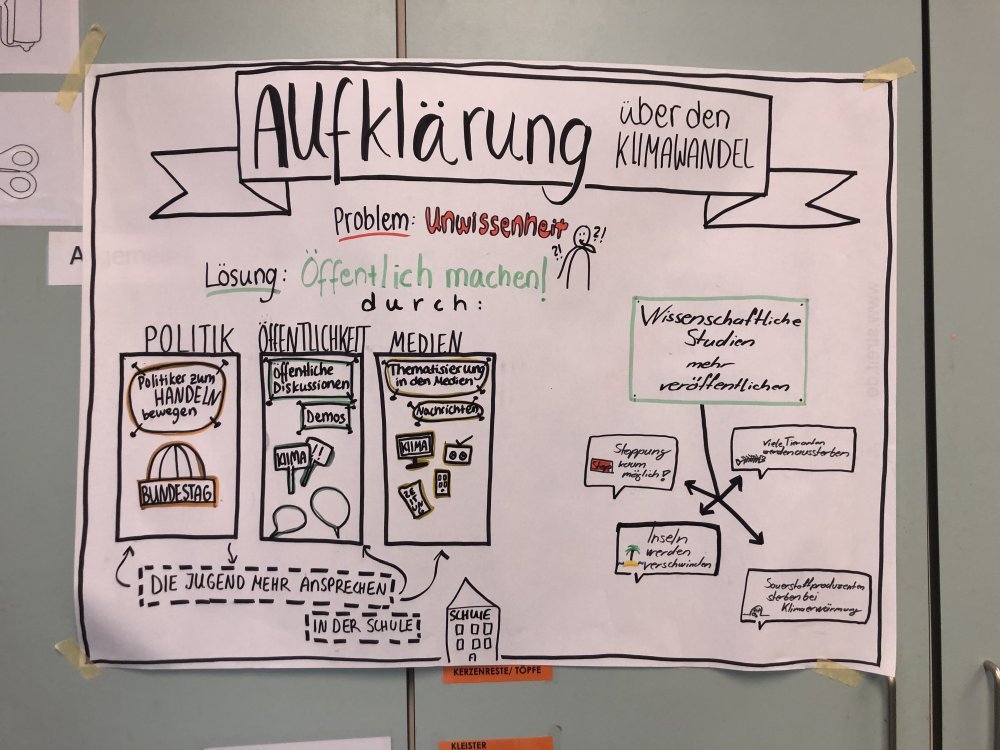 AUfklärung
über den
KLIMAWANDEL
Problem: Unwissenheit
?!
?!
Lösung: Öffentlich machen!
durch:
POLITIK
Politiker zum
HANDELN
bewegen
BUNDESTAG
ÖFFENTLICHKEIT
Öffentliche
Diskussionen
Demos
KLIMA
MEDIEN
Thematisierung
in den Medien
Nachrichten
KLIMA
ZEITUNG
Wissenschaftliche
Studien
mehr
veröffentlichen
Stoppung
kaum
möglich!
viele Tierarten
werden aussterben
Inseln
werden
verschwinden
Sauerstoffproduzenten
sterben bei
Klimaerwärmung
DIE JUGEND MEHR ANSPRECHEN
IN DER SCHULE
SCHULE
KERZENRESTE/ TÖPFE
KLEISTER